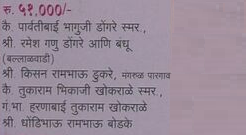 रु. ५१,000/-
कै. पार्वतीबाई भागुजी डोंगरे स्मर.,
श्री. रमेश गणु डोंगरे आणि बंधू
(बल्लाळवाडी)
श्री. किसन रामभाऊ डुकरे, मंगरुळ पारगाव
कै. तुकाराम भिकाजी खोकराळे स्मर.,
गं.भा. हरणाबाई तुकाराम खोकराळे
श्री. धोंडिभाऊ रामभाऊ बोडके